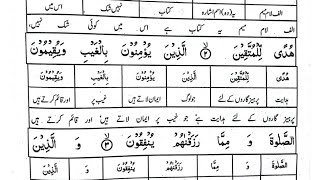 الف لام میم یہ(وہ)اسم اشارہ کتاب نہیں شک اس میں
الف لام میم یہ کتاب ہے اس میں کوئی شک نہیں
هُدًى لِّلْمُتَّقِيْنَ ۙ﴿۲﴾ الَّذِيْنَ يُؤْمِنُوْنَ بِالْغَيْبِ وَيُقِيْمُوْنَ
هُدًى لِّلْمُتَّقِيْنَ الَّذِيْنَ يُؤْمِنُوْنَ بِالْغَيْبِ وَيُقِيْمُوْنَ
ہدایت پرہیز گاروں کے لئے جو لوگ ایمان لاتے ہیں غیب پر اور قائم کرتے ہیں
پرہیز گاروں کے لئے ہدایت ہے جو غیب پر ایمان لاتے ہیں اور قائم کرتے ہیں
الصَّلٰوةَ وَ مِمَّا رَزَقْنٰهُمْ يُنْفِقُوْنَ ۙ﴿۳﴾ وَ الَّذِيْنَ
الصَّلٰوةَ وَ مِمَّا رَزَقْنٰهُمْ يُنْفِقُوْنَ وَ الَّذِيْنَ